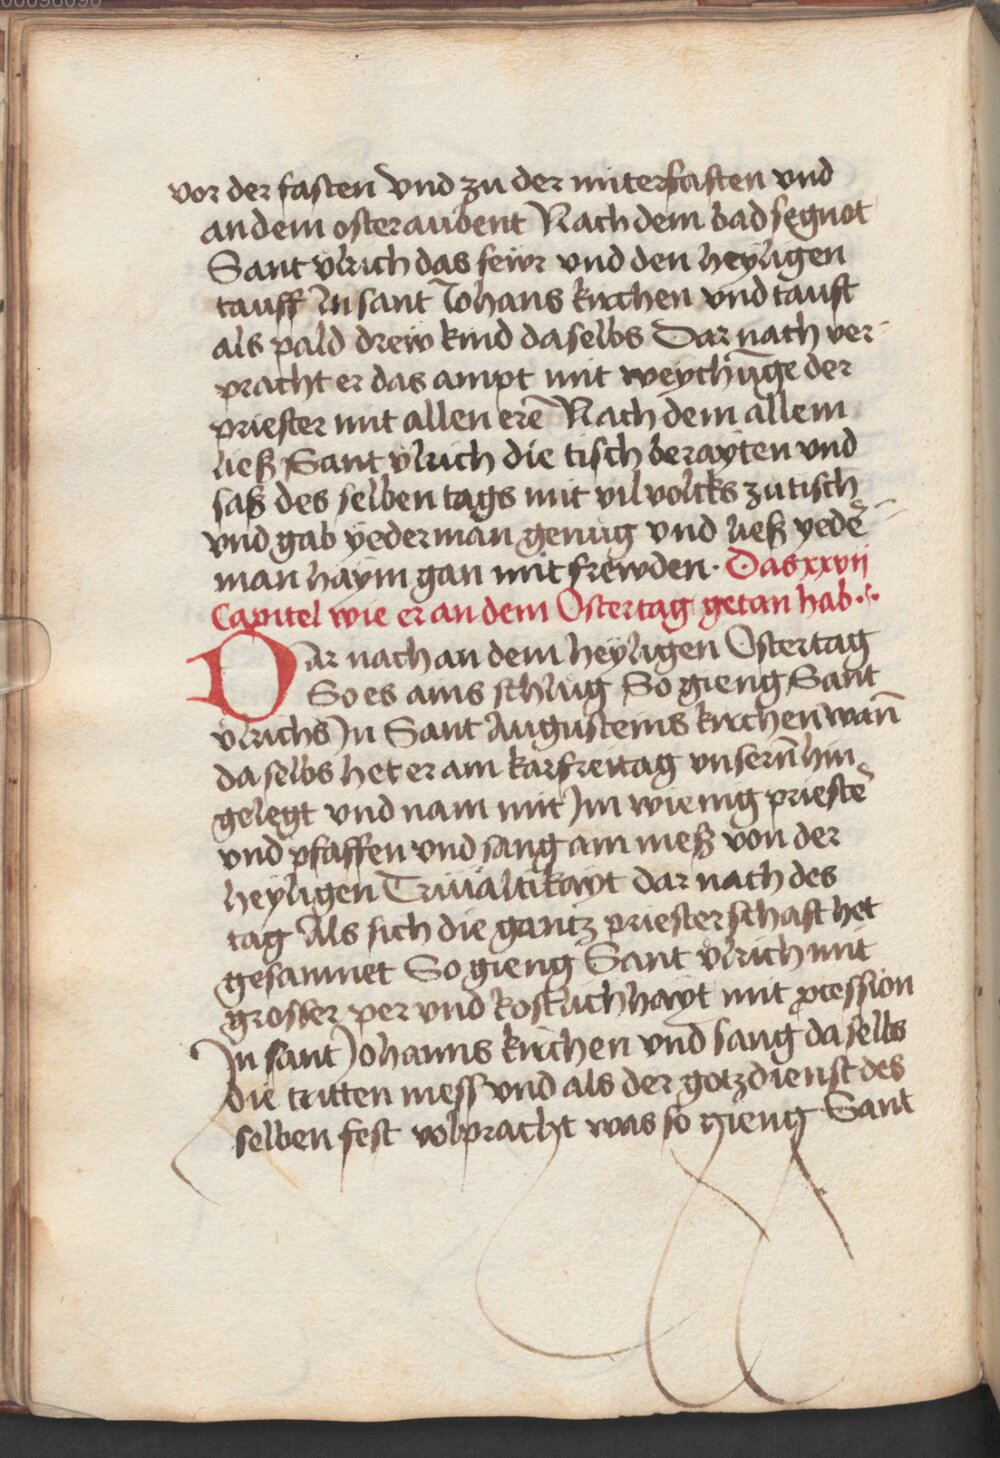 00096098
vor der fasten vnd zu der miterfasten vnd
an dem osteraubent Nach dem bad segnot
Sant vlrich das fewr vnd den heyligen
tauff In sant Johans kirchen vnd tauft
als pald drew kind daselbs Dar nach ver
pracht er das ampt mit weychūge der
priester mit allen erē Nach dem allem
ließ Sant vlrich die tisch berayten vnd
saß des selben tags mit vil volcks zu tisch
vnd gab yederman genug vnd ließ yedē
man haym gan mit frewden. Das xxvii
Capitel wie er an dem Ostertag getan hab
Dar nach an dem heyligen Ostertag
So es ains schlug So gieng Sant
vlrichs In Sant Augusteins kirchen wañ
da selbs het er am karfreitag vnserñ hin
gelegt vnd nam mit Im wienig priestē
vnd pfaffen vnd sang ain meß von der
heyligen Triualtikayt dar nach des
tag Als sich die gantz priesterschaft het
gesamnet So gieng Sant vlrich mit
grosser per vnd kostlichhayt mit pcession
In sant Johanns kirchen vnd sang da selbs
die tritten mess vnd als der gotzdienst des
selben fest volpracht was so gieng Sant